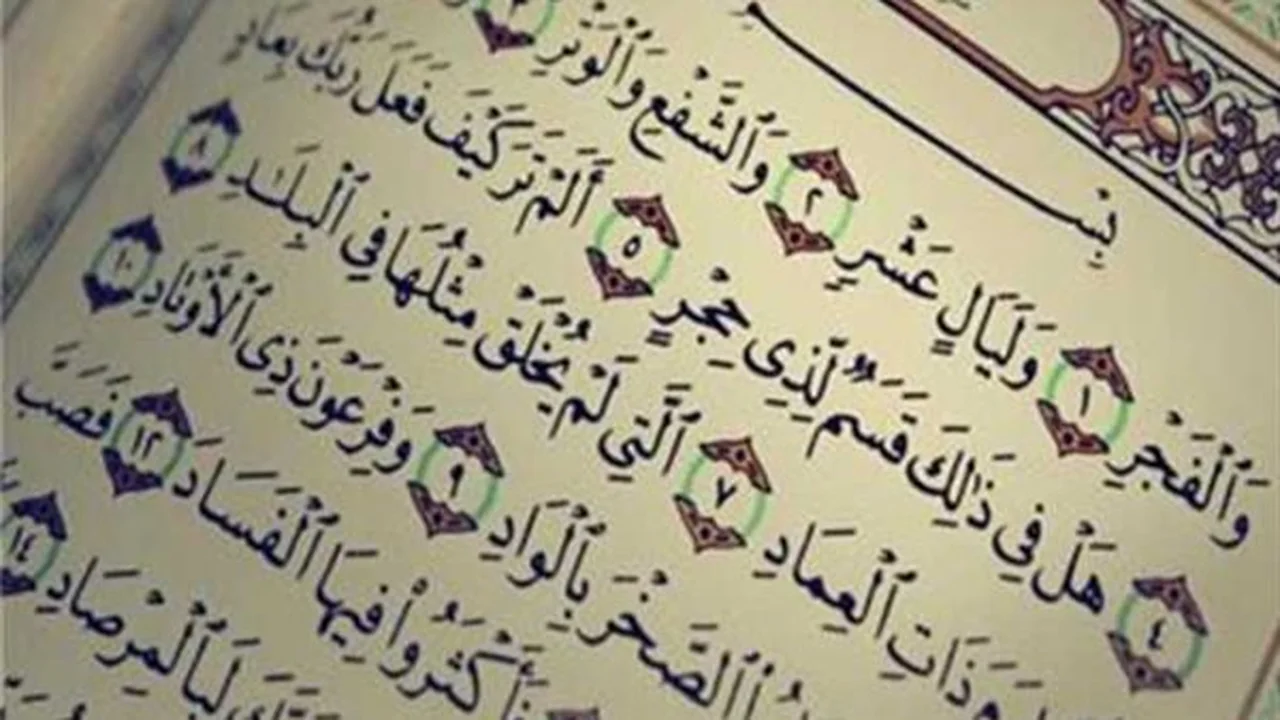 بِسْ
وَٱلْفَجْرِ ١ وَلَيَالٍ عَشْرٍ ٢ وَٱلشَّفْعِ وَٱلْوَتْرِ ٣
٤ هَلْ فِى ذَٰلِكَ قَسَمٌ لِّذِى حِجْرٍ ٥ أَلَمْ تَرَ كَيْفَ فَعَلَ رَبُّكَ بِعَادٍ
ذَاتِ ٱلْعِمَادِ ٧ ٱلَّتِى لَمْ يُخْلَقْ مِثْلُهَا فِى ٱلْبِلَٰدِ ٨
ٱلصَّخْرَ بِٱلْوَادِ ٩ وَفِرْعَوْنَ ذِى ٱلْأَوْتَادِ ١٠
فَأَكْثَرُوا۟ فِيهَا ٱلْفَسَادَ ١٢ فَصَبَّ
لَبِٱلْمِرْصَادِ ١٤